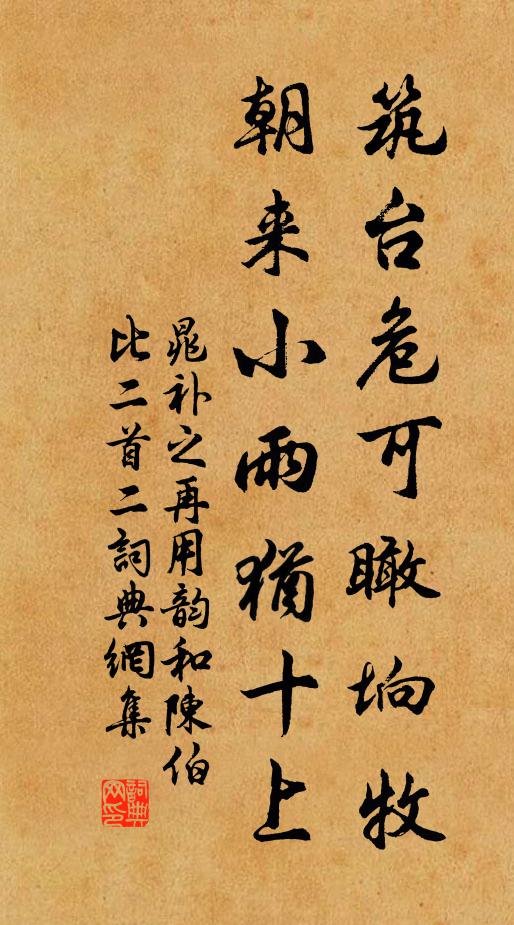 筑台危可瞰坰牧
朝来小雨猶十上
晁补之再用韵和陳伯
比二首二詞典網集
詞典网印